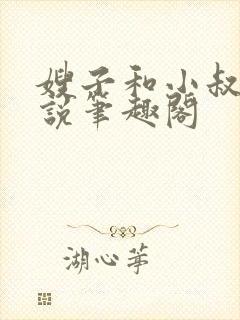 嫂子和小叔
說筆趣閣
湖心䓁